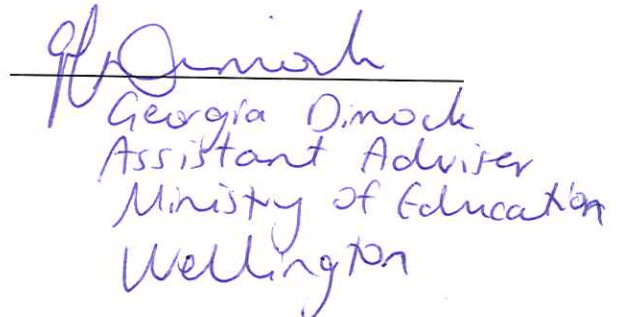 Georgia Dimock
Assistant Adviser
Ministry of Education
Wellington